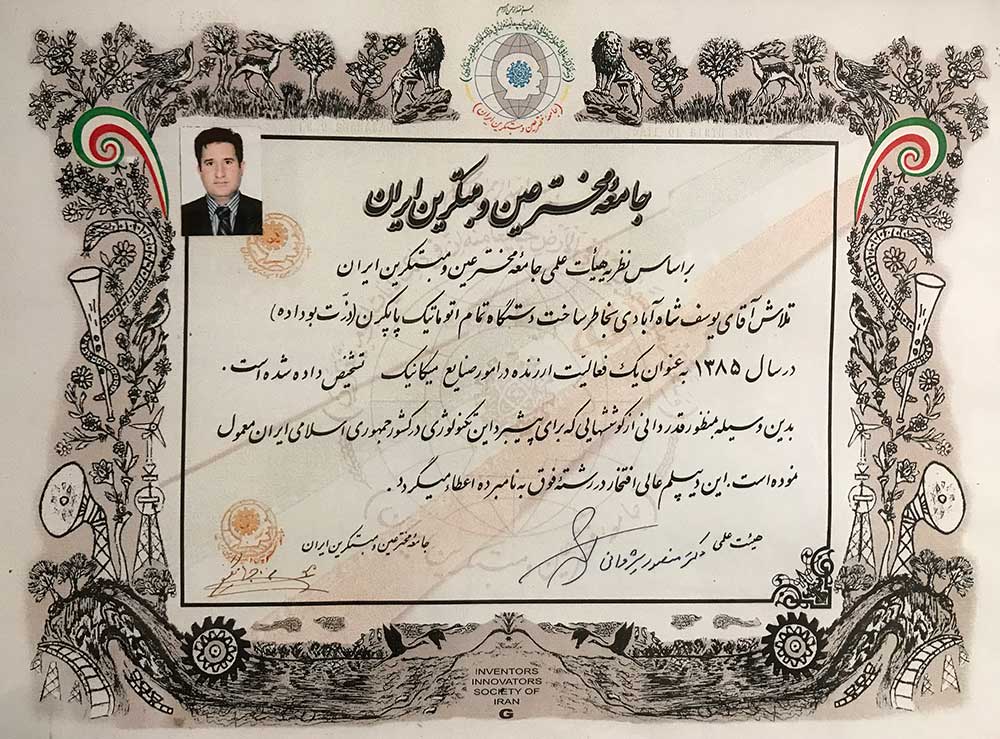 جامعهٔ مخترعین و مبتکرین ایران
جامعهٔ مخترعین و مبتکرین ایران
بر اساس نظریه هیأت علمی جامعهٔ مخترعین و مبتکرین ایران
تلاش آقای یوسف شاه آبادی بخاطر ساخت دستگاه تمام اتوماتیک پاپکرن (ذرّت بو داده)
در سال ۱۳۸۵ به عنوان یک فعالیّت ارزنده در امور صنایع میکانیک تشخیص داده شده است.
بدین وسیله بمنظور قدردانی از کوششهایی که برای پیشبرد این تکنولوژی در کشور جمهوری اسلامی ایران معمول
نموده است. این دیپلم عالی افتخار در رشتهٔ فوق به نامبرده اعطاء میگردد.
هیئت علمی
دکتر منصور
جامعهٔ مخترعین و مبتکرین ایران
INVENTORS
INNOVATORS
SOCIETY OF
IRAN
G